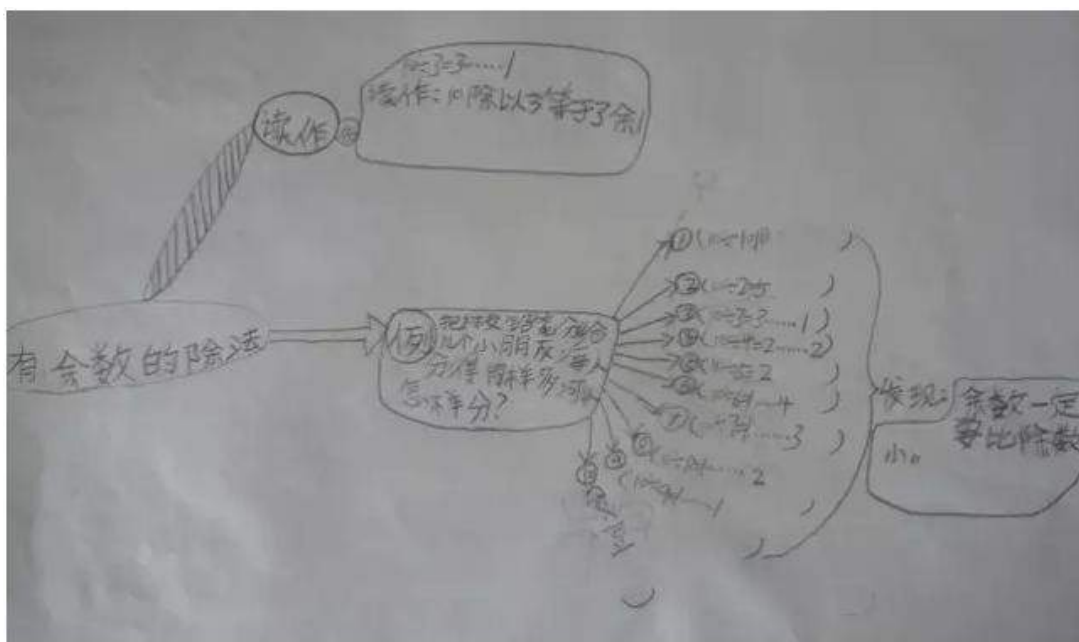 10÷3=3……1
读作：10除以3等于3余1
读作
有余数的除法
例
把10枝铅笔分给
几个小朋友，每人
分得同样多，可以
怎样分？
①(10÷1=10 )
②(10÷2=5 )
③(10÷3=3……1)
④(10÷4=2……2)
⑤(10÷5=2 )
⑥(10÷6=1……4 )
⑦(10÷7=1……3 )
⑧(10÷8=1……2 )
⑨(10÷9=1……1 )
发现：
余数一定
要比除数
小。